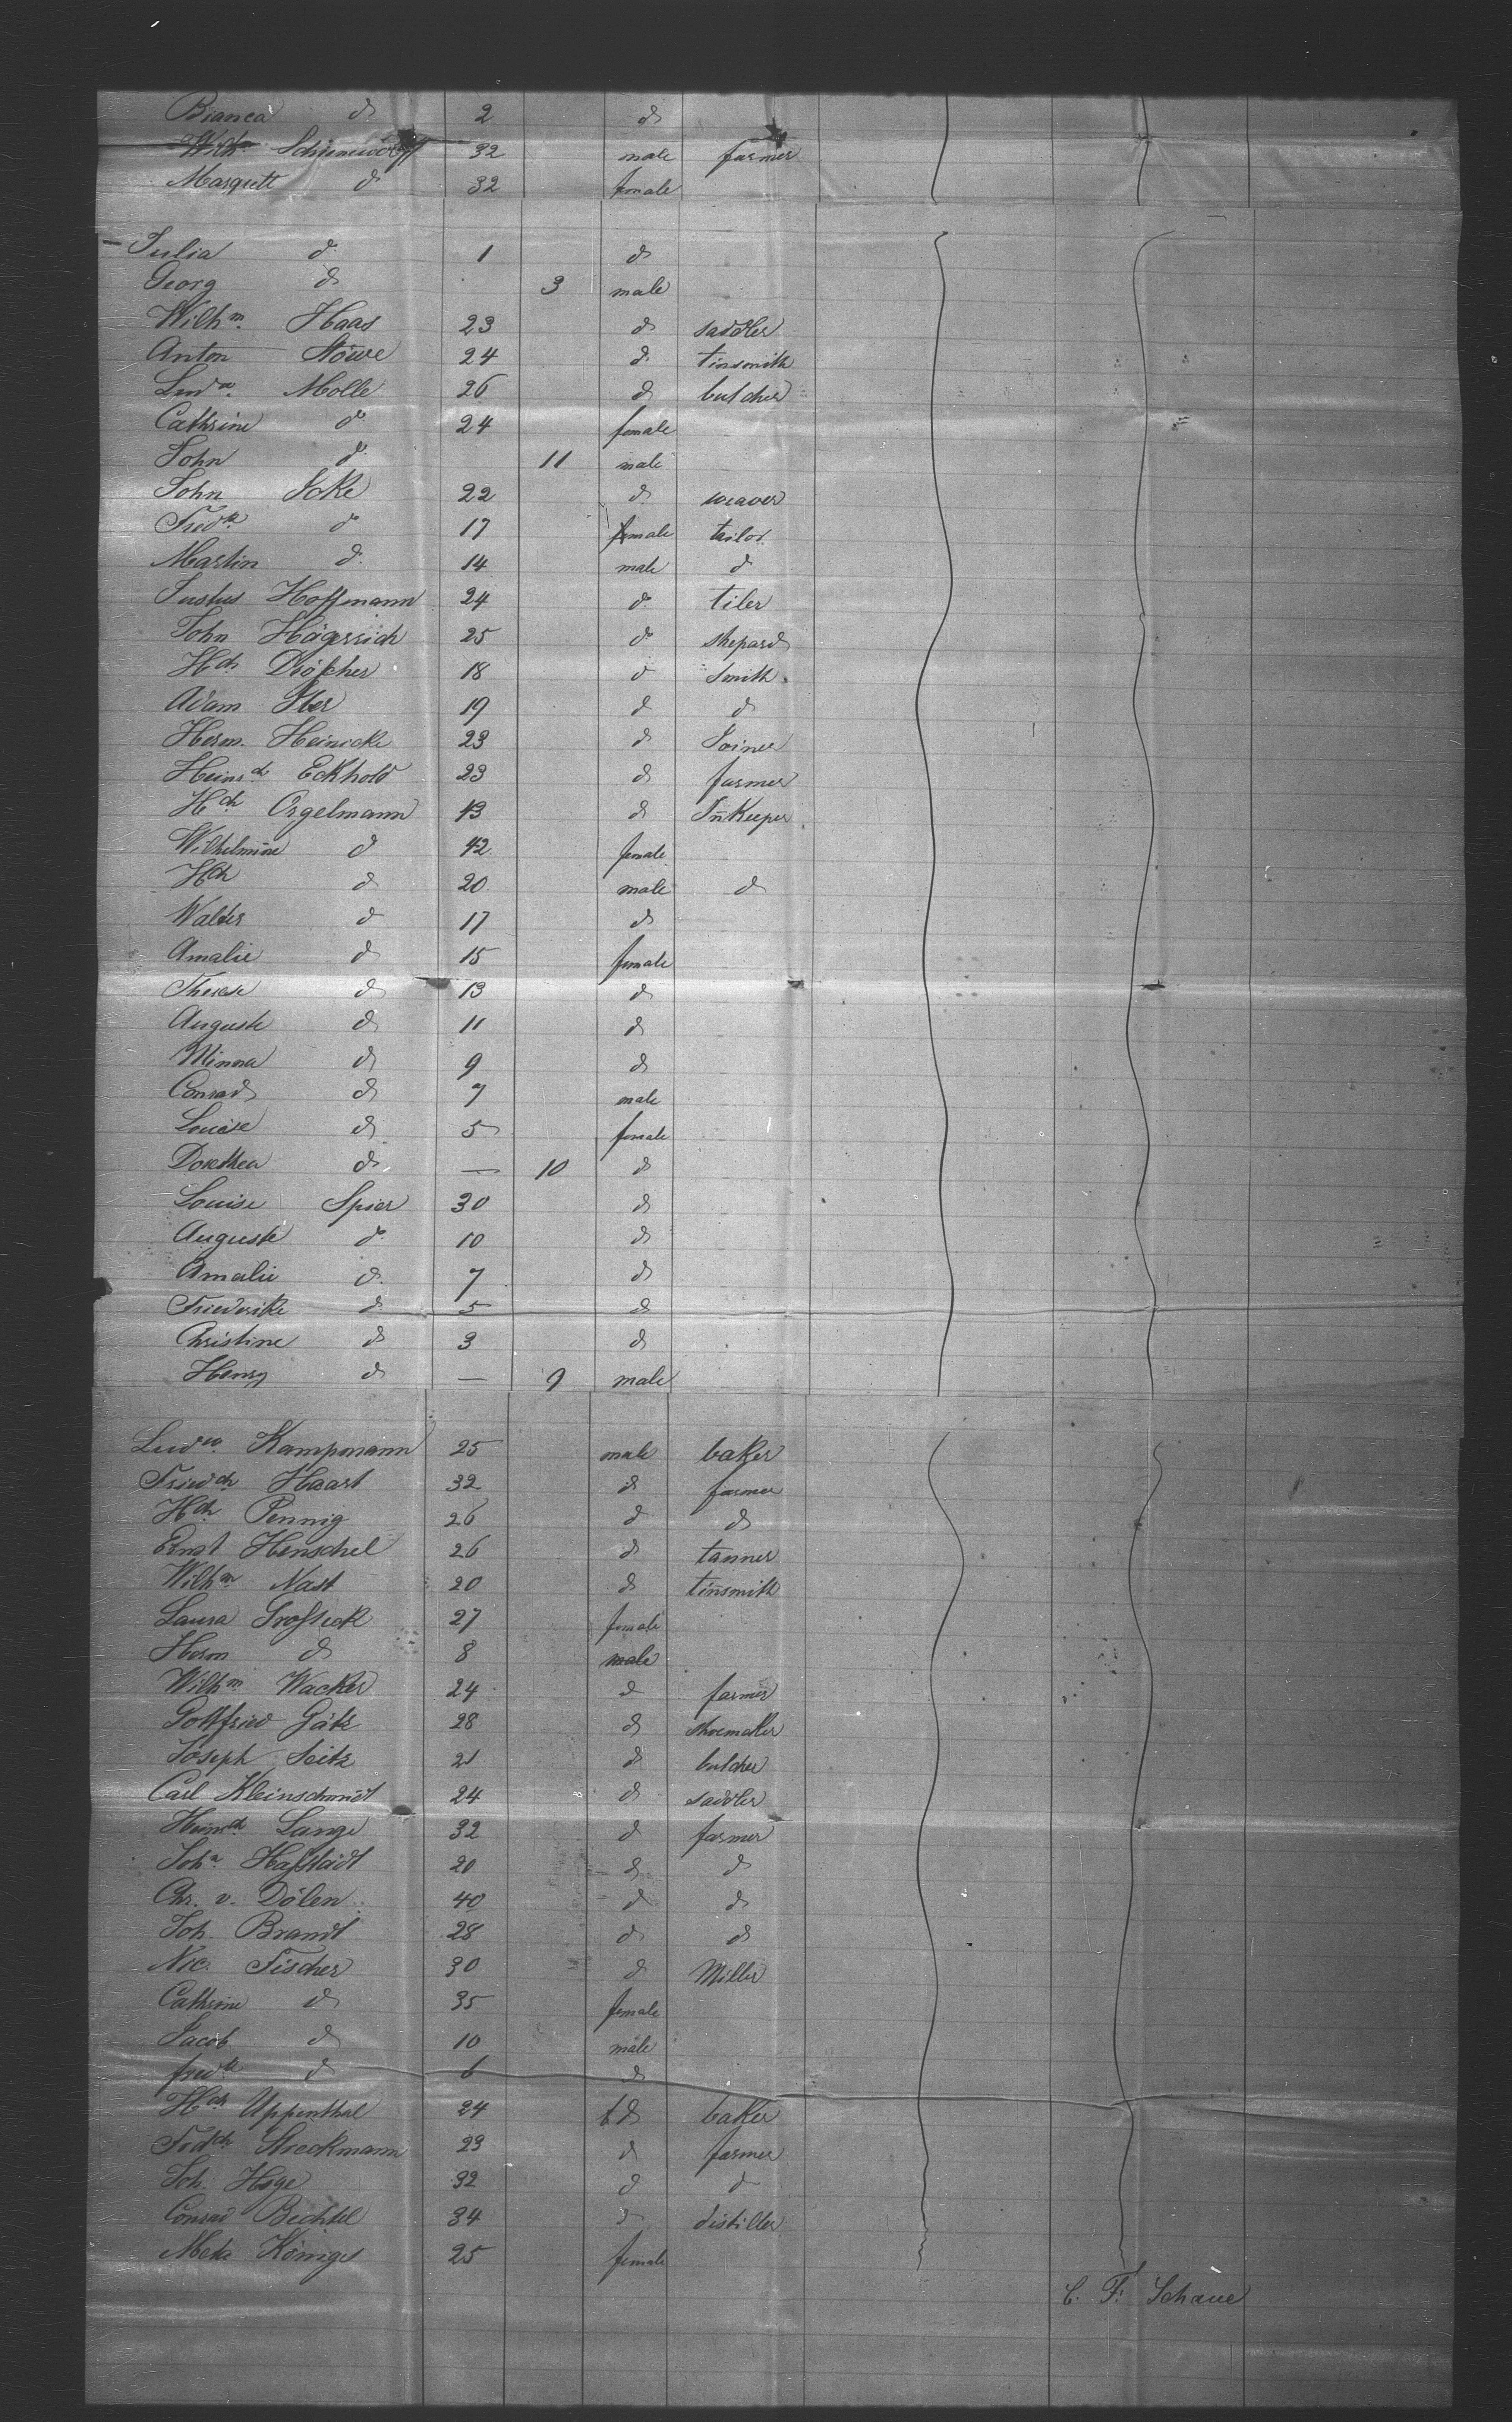 Bianca do 2 do
Wilhm 32 male farmer
Margrett do 32 female
Julia do 1 do
Georg do 3 male
Wilhm. Haas 23 do saddler
Anton Stöwe 24 do tinsmith
Ludw. Molle 26 do butcher
Cathrine do 24 female
John do 11 male
John Icke 22 do weaver
Fredk. do 17 female tailor
Martin do 14 male do
Justus Hoffmann 24 do tiler
John Hägerrich 25 do shepard
Hch 18 do smith
Adam 19 do do
Herm. Heinicke 23 do Joiner
Heinrch Eckhold 23 do farmer
Hch Orgelmann 43 do Inkeeper
Wilhelmine do 42 female
Hch do 20 male do
Walter do 17 do
Amalie do 15 female
Therese do 13 do
Auguste do 11 do
Minna do 9 do
Conrad do 7 male
Louise do 5 female
Dorethea do — 10 do
Louise Spier 30 do
Auguste do 10 do
Amalie do 7 do
Friederike do 5 do
Christine do 3 do
Henry do — 9 male
Ludw. Kampmann 25 male baker
Friedch Haast 32 do farmer
Hch Pennig 26 do do
Ernst Henschel 26 do tanner
Wilhm Nast 20 do tinsmith
Laura 27 female
Herm do 8 male
Wilhm Wacker 24 do farmer
Gottfried Götz 28 do shoemaker
Joseph Seitz 21 do butcher
Carl Kleinschmidt 24 do saddler
Heinrch Lange 32 do farmer
John Haßstädt 20 do do
Chr. v. Dölen 40 do do
Joh. Brandt 28 do do
Nic. Fischer 30 do Miller
Cathrine do 35 female
Jacob do 10 male
fredk do 6 do
Hch Uppenthal 24 do baker
Fredch Streckmann 23 do farmer
Joh. Hoge 32 do do
Conrad Bechtel 34 do distiller
Meta Königs 25 female
C. F. Schaue